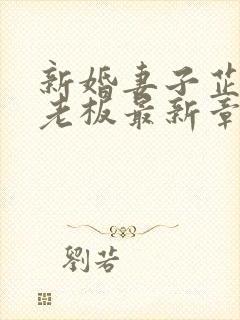 新婚妻子芷
老板最新章
劉芸